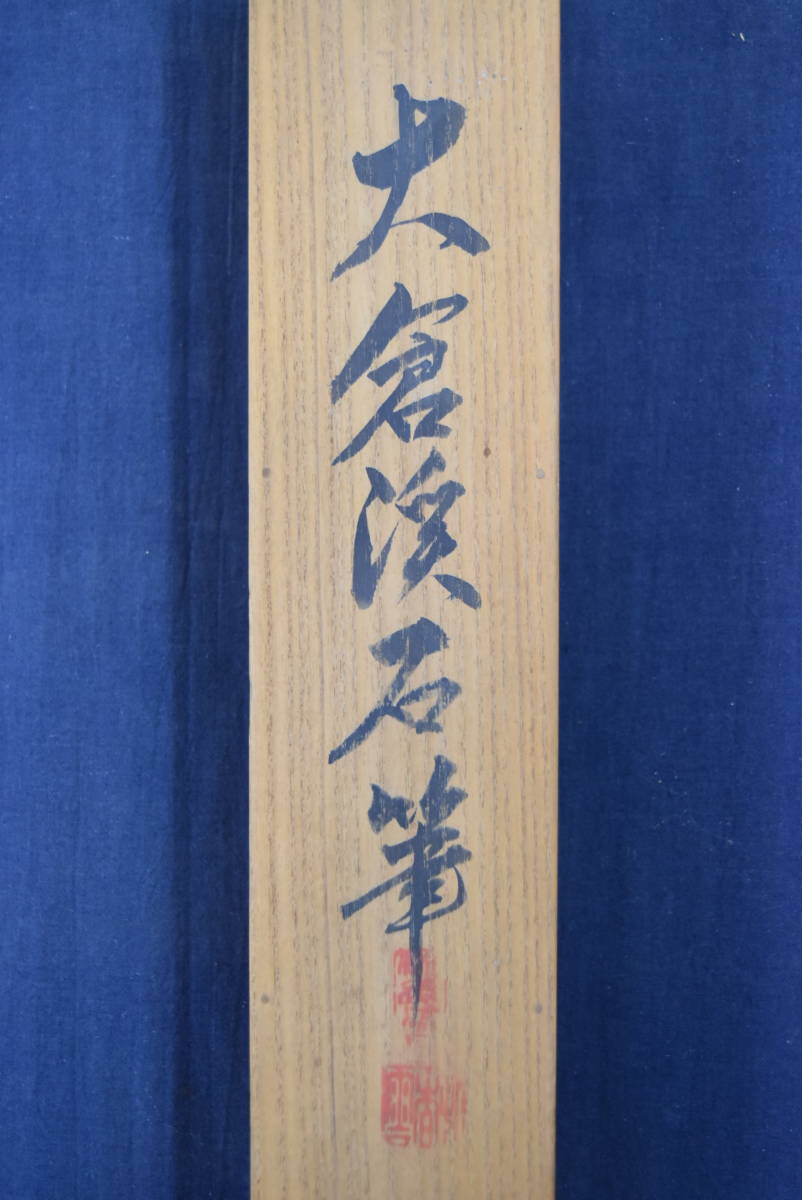 大倉渓石筆